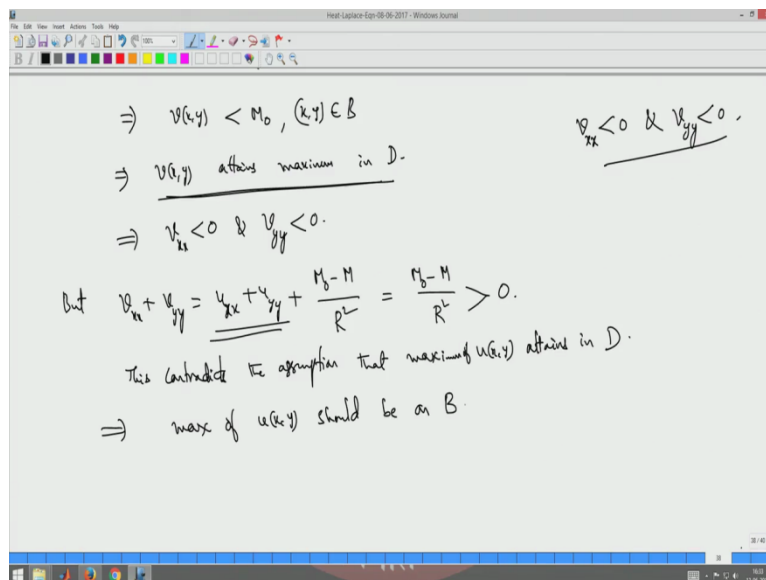 Heat-Laplace-Eqn-08-06-2017 - Windows Journal
File Edit View Insert Actions Tools Help
100%
B I
⇒ v(x,y) < M₀, (x,y) ∈ B
v_xx < 0 & v_yy < 0.
⇒ v(x,y) attains maximum in D.
⇒ v_xx < 0 & v_yy < 0.
But v_xx + v_yy = u_xx + u_yy + (M₀ - M)/R² = (M₀ - M)/R² > 0.
This contradicts the assumption that maximum of u(x,y) attains in D.
⇒ max of u(x,y) should be on B.
38 / 40
38